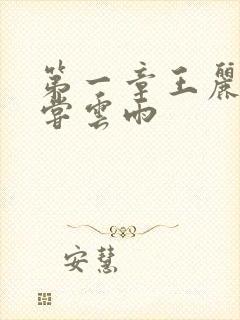 第一章王麗
嘗雲雨
安慧